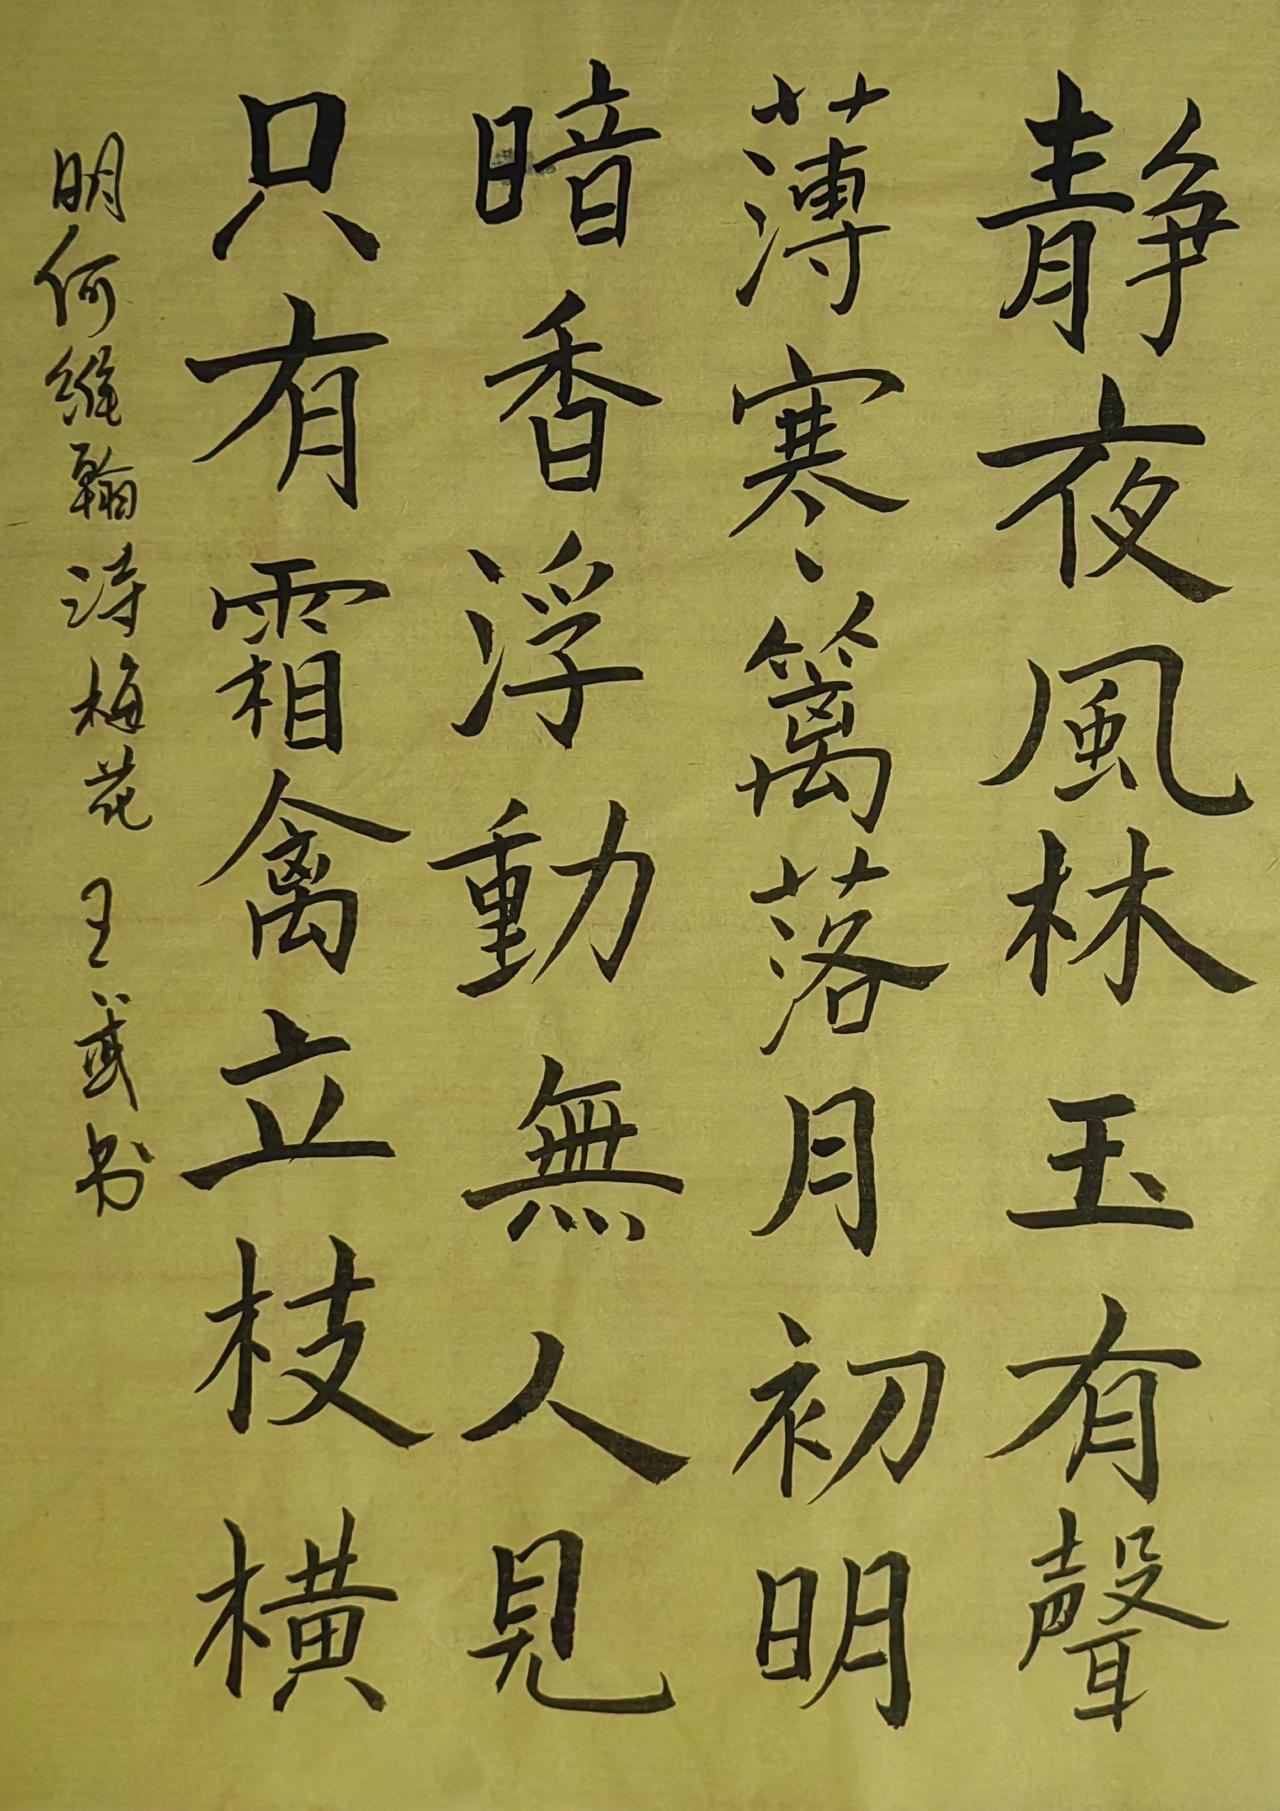 静夜風林玉有聲
薄寒籬落月初明
暗香浮動無人見
只有霜禽立枝橫
明何維翰诗梅花 王 书